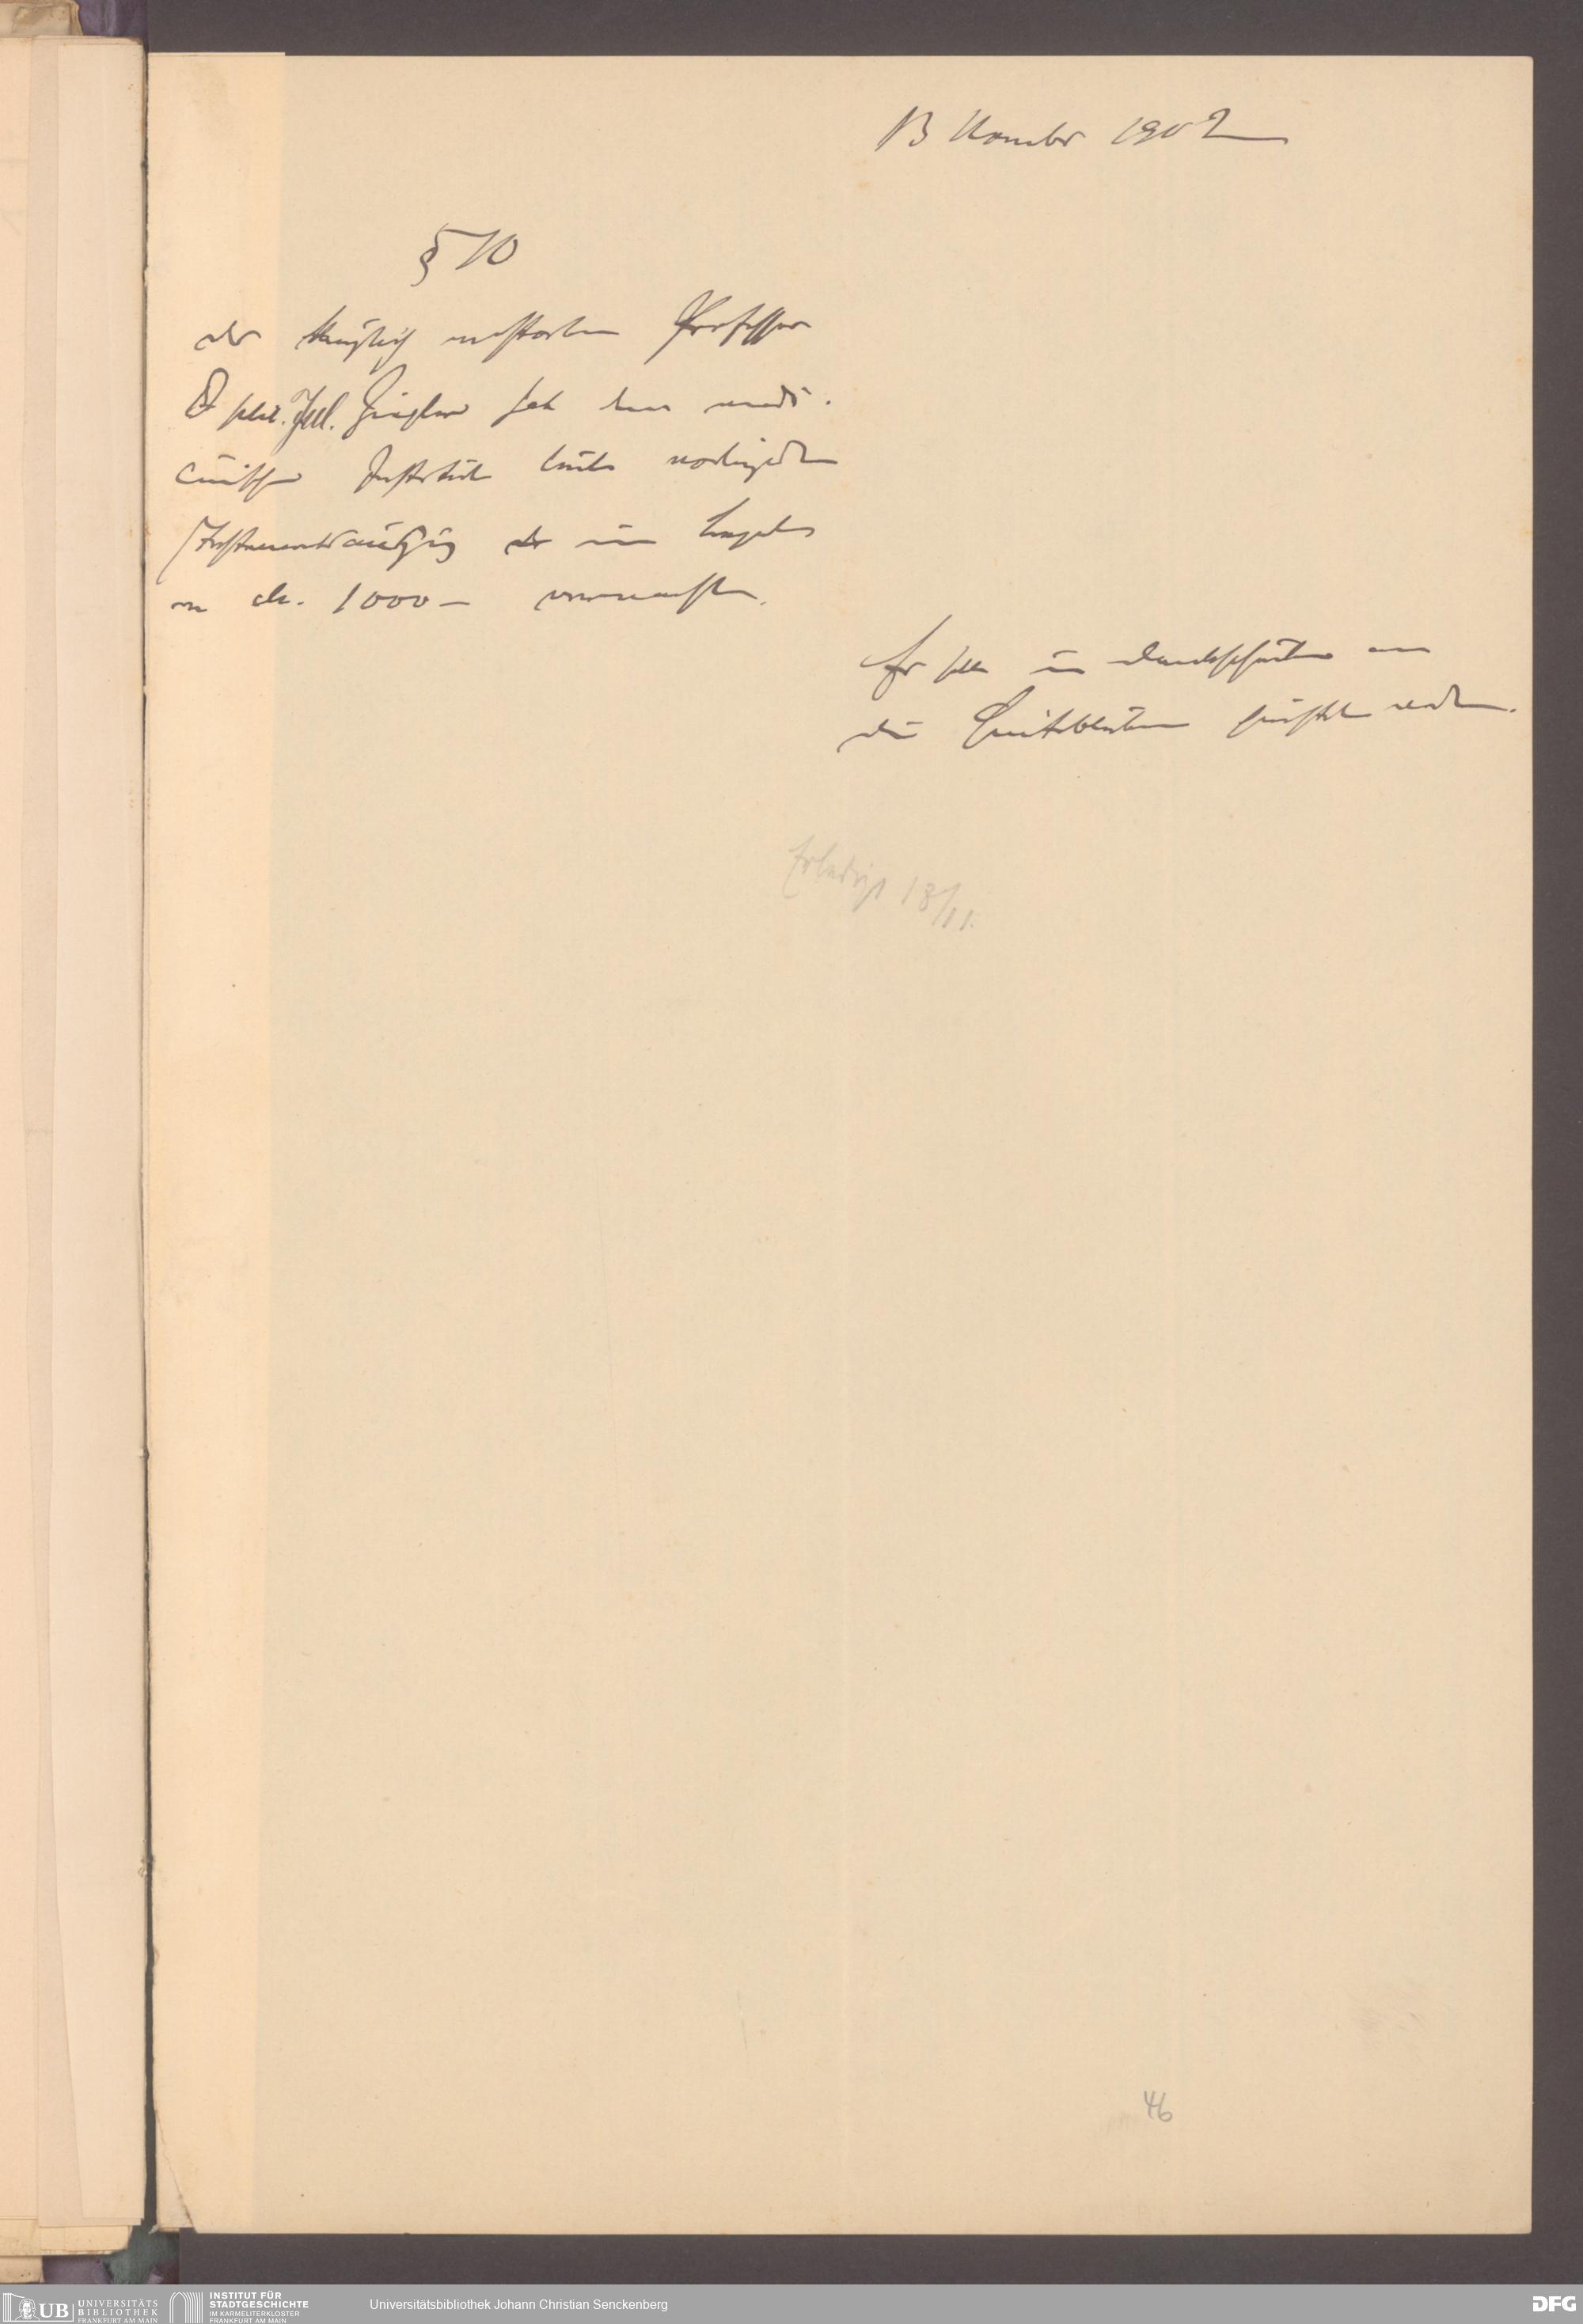 13 November 1902
§ 10
der kürzlich verstorbene Professor
Dr phil. Jul. Ziegler hat dem medi-
cinischen Institut laut vorliegendem
Testamentsauszug
M. 1000 –
Er soll in Dankschreiben an
die Hinterbliebenen gerichtet werden.
Erledigt 18/11.
46
UB UNIVERSITÄTS
BIBLIOTHEK
FRANKFURT AM MAIN
INSTITUT FÜR
STADTGESCHICHTE
IM KARMELITERKLOSTER
FRANKFURT AM MAIN
Universitätsbibliothek Johann Christian Senckenberg
DFG